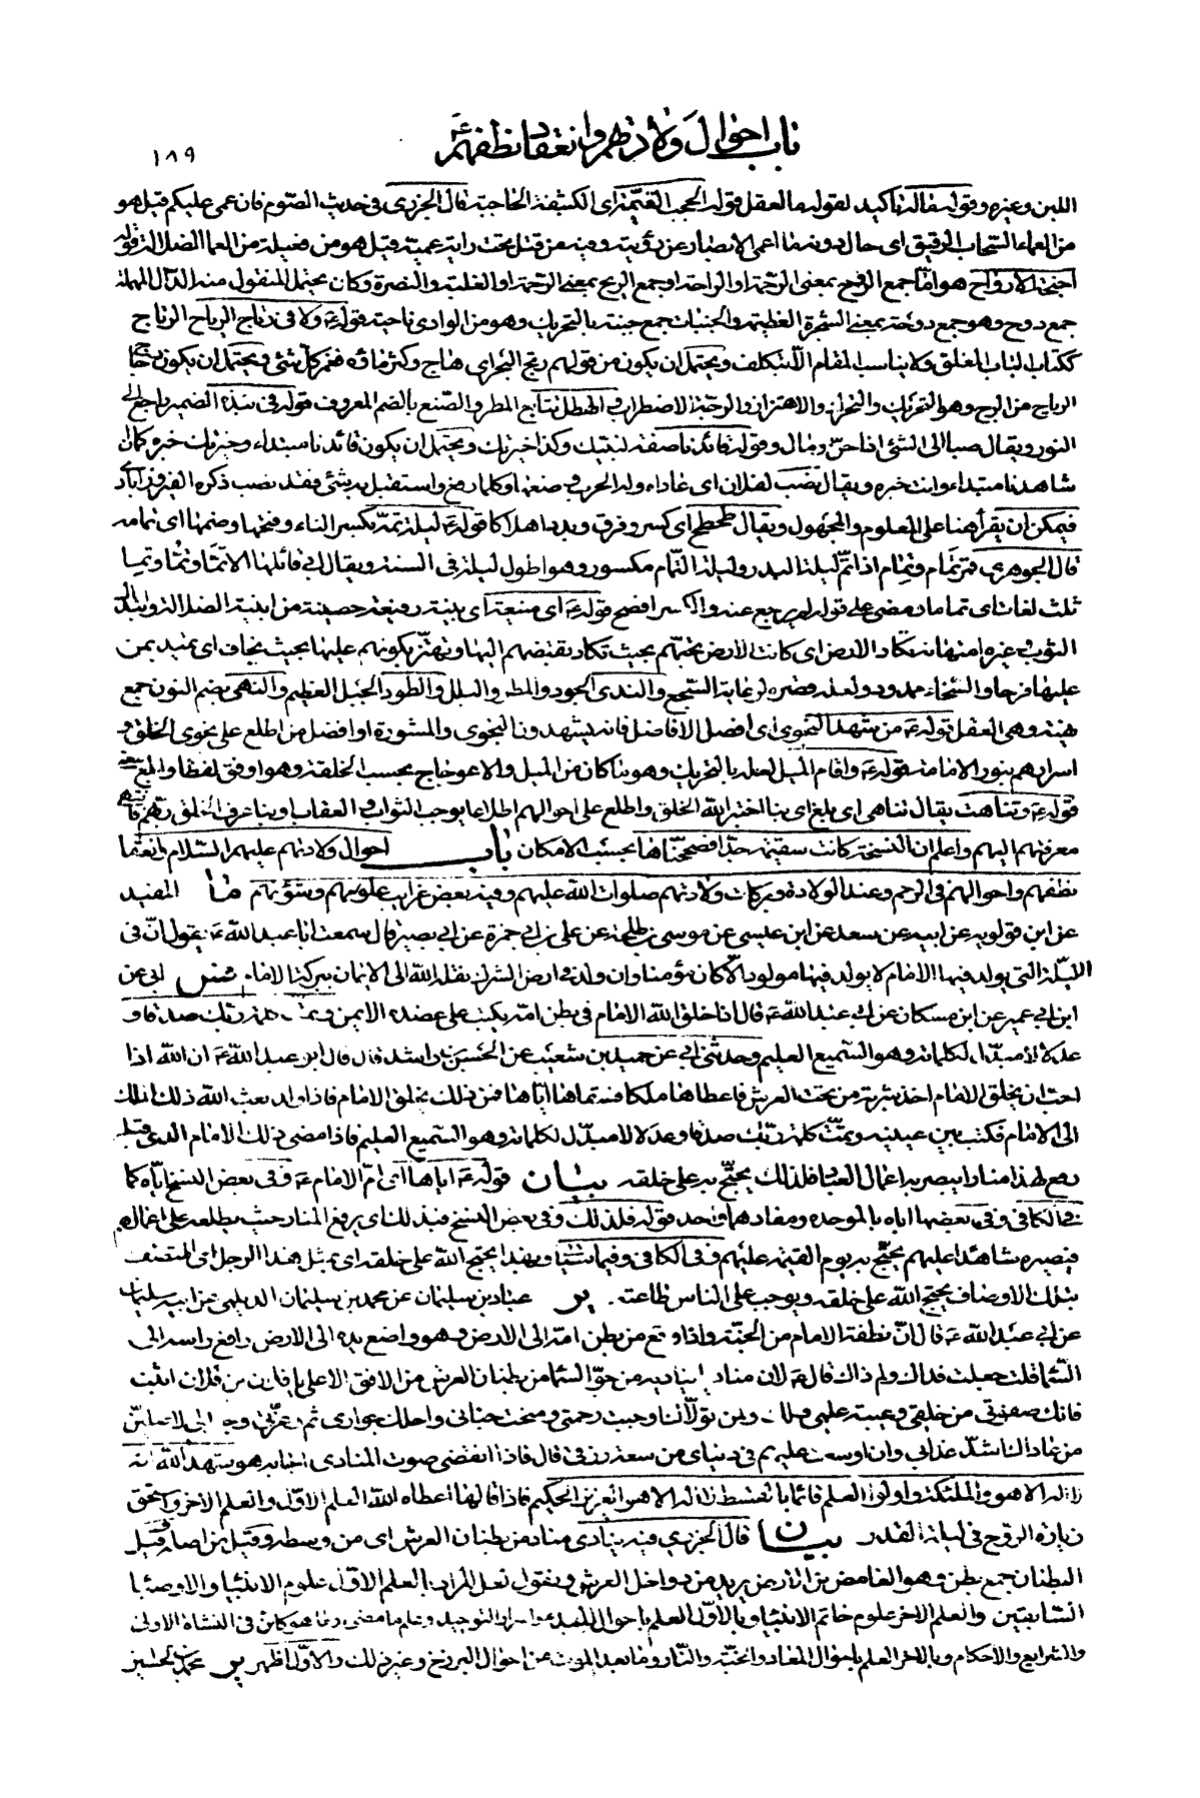 باب احوال ولادتهم وانعقاد نطفهم
١٨٩
اللبن وغيره وقوله سفالة تأكيد لقوله ما العقل قوله الحجب المغيّمة اى الكثيفة الحاجبة قال الجزرى فى حديث الصّوم فان عمى عليكم قيل هو
من العماء السّحاب الرقيق اى حال دونه ما اعمى الابصار عن رؤيته وفيه من قتل تحت راية عمية قيل هو من فعيلة من العما الضلالة قوله
اجنحة الارواح هو امّا جمع الروح بمعنى الرّحمة او الراحة او جمع الريح بمعنى الرّحمة او الغلبة والنصرة وكان يحتمل المنقول منه الدّال المهملة
جمع دوح وهو جمع دوحة بمعنى الشجرة العظيمة والجنبات جمع جنبة بالتحريك وهو من الوادى ناحيته قوله ع ولا فى رتاج الرياح الرتاج
ككتاب الباب المغلق ولا يناسب المقام الّا بتكلف ويحتمل ان يكون من قولهم رتج البحر اى هاج وكثر ماؤه فغمر كلّ شئ ويحتمل ان يكون
الرياج من الرج وهو التحريك والتحرك والاهتزاز والرجّة الاضطراب الهطل تتابع المطر والصّنع بالضم المعروف قوله فى نبذه الضمير راجع الى
النور ويقال صبا الى الشئ اذا حنّ ومال وقوله قائدنا صفة لنبيّك وكذا خبرتك ويحتمل ان يكون قائدنا مبتداء وخبرتك خبره كما ان
شاهدنا مبتداء وانت خبره ويقال نصب لفلان اى عاداه وله الحرب وضعها وكلما رفع واستقبل به شئ فقد نصب ذكره الفيروزآبادى
فيمكن ان يقرأ هنا على المعلوم والمجهول ويقال طحطح اى كسر وفرق وبدد اهلاكا قوله ع ليلة تمّه بكسر التاء وفتحها وضمها اى تمامه
قال الجوهرى قمر تمام وتمام اذا تمّ ليلة البدر وليلة التمام مكسور وهو اطول ليلة فى السنة ويقال ابى قائلها الا تمّا وتمّا وتمّا
ثلث لغات اى تماما ومضى على قوله لم يرجع عنه والكسر افصح قوله ع اى منيعة اى بنية رفيعة حصينة من ابنية الضلالة
عليها فرحا والسّخاء ممدود ولعله قصره لرعاية السّجع والندى الجود والمطر والبلل والطود الجبل العظيم والنهى بضم النون جمع
نهية وهى العقل قوله ع من شهد النجوى اى افضل الافاضل فانه يشهدون النجوى والمشورة او افضل من اطلع على نجوى الخلق و
اسرارهم بنور الامامة قوله ع واقام الميل لعله بالتحريك وهو ما كان من الميل والاعوجاج بحسب الخلقة وهو اوفق لفظا ومعنى
قوله ع وتناهت يقال تناهى اى بلغ اى بنا اختبر الله الخلق واطلع على احوالهم اطلاعا يوجب الثواب والعقاب او بنا عرف الخلق ربهم
معرفتهم اليهم واعلم ان النسخة كانت سقيمة جدّا فصححناها بحسب الامكان باب احوال ولادتهم عليهم السّلام وانعقاد
نطفهم واحوالهم فى الرحم وعند الولادة وبركات ولادتهم صلوات الله عليهم وفيه بعض غرائب علومهم وشؤنهم ما المفيد
عن ابن قولويه عن ابيه عن سعد عن ابن عيسى عن موسى بن طلحة عن على بن ابى حمزة عن ابى بصير قال سمعت ابا عبد الله ع يقول انّ فى
اللّيلة التى يولد فيها الامام لا يولد فيها مولود الّا كان مؤمنا وان ولد فى ارض الشرك نقله الله الى الايمان ببركة الامام فس ابى عن
ابن ابى عمير عن ابن مسكان عن ابى عبد الله ع قال اذا خلق الله الامام فى بطن امّه يكتب على عضده الايمن وتمّت كلمة ربك صدقا و
عدلا لا مبدّل لكلماته وهو السّميع العليم وحدثنى ابى عن حميد بن شعيب عن الحسن بن راشد قال قال ابو عبد الله ع ان الله اذا
احبّ ان يخلق الامام اخذ شربة من تحت العرش فاعطاها ملكا فسقاها اياها فمن ذلك يخلق الامام فاذا ولد بعث الله ذلك الملك
الى الامام فكتب بين عينيه وتمّت كلمة ربّك صدقا وعدلا لا مبدّل لكلماته وهو السّميع العليم فاذا مضى ذلك الامام الذى قبله
رفع لهذا منارا يبصر به اعمال العباد فلذلك يحتجّ به على خلقه بيان قوله ع اياها اى امّ الامام ع وفى بعض النسخ اياه كما
فى الكافى وفى بعضها اباه بالموحدة ومفادهما واحد قوله فلذلك وفى بعض النسخ فبذلك اى يرفع المنار حيث يطلعه على اعمالهم
فيصير شاهدا عليهم يحتجّ به يوم القيمة عليهم وفى الكافى وفيما سيأتى وبهذا يحتج الله على خلقه اى بمثل هذا الرجل المتصف
بتلك الاوصاف يحتج الله على خلقه ويوجب على الناس طاعته . ير عباد بن سليمان عن محمد بن سليمان الديلمى عن ابيه سليمان
عن ابى عبد الله ع قال انّ نطفة الامام من الجنّة واذا وقع من بطن امّه الى الارض وقع وهو واضع يده الى الارض رافع راسه الى
السّماء قلت جعلت فداك ولم ذاك قال ع لان مناديا يناديه من جوّ السّماء من بطنان العرش من الافق الاعلى يا فلان بن فلان اثبت
فانك صفوتى من خلقى وعيبة علمى ولك ومن تولّاك اوجبت رحمتى ومنحت جنانى واحلك جوارى ثم وعزّتى وجلالى لاصلينّ
من عاداك اشدّ عذابى وان اوسعت عليهم فى دنياى من سعة رزقى قال فاذا انقضى صوت المنادى اجابه هو شهد الله انه
لا اله الا هو والملئكة واولوا العلم قائما بالقسط لا اله الا هو العزيز الحكيم فاذا قالها اعطاه الله العلم الاوّل والعلم الآخر واستحق
زيارة الروح فى ليلة القدر بيان قال الجزرى فيه ينادى مناد من بطنان العرش اى من وسطه وقيل من اصله وقيل
البطنان جمع بطن وهو الغامض من الارض يريد من دواخل العرش ونقول لعل المراد بالعلم الاوّل علوم الانبياء والاوصياء
السّابقين والعلم الآخر علوم خاتم الانبياء او بالاوّل العلم باحوال المبدء واسرار التوحيد وعلم ما مضى وما هو كائن فى النشاة الاولى
والشرايع والاحكام وبالآخر العلم باحوال المعاد والجنّة والنّار وما بعد الموت من احوال البرزخ وغير ذلك والاوّل اظهر ير محمد بن الحسين